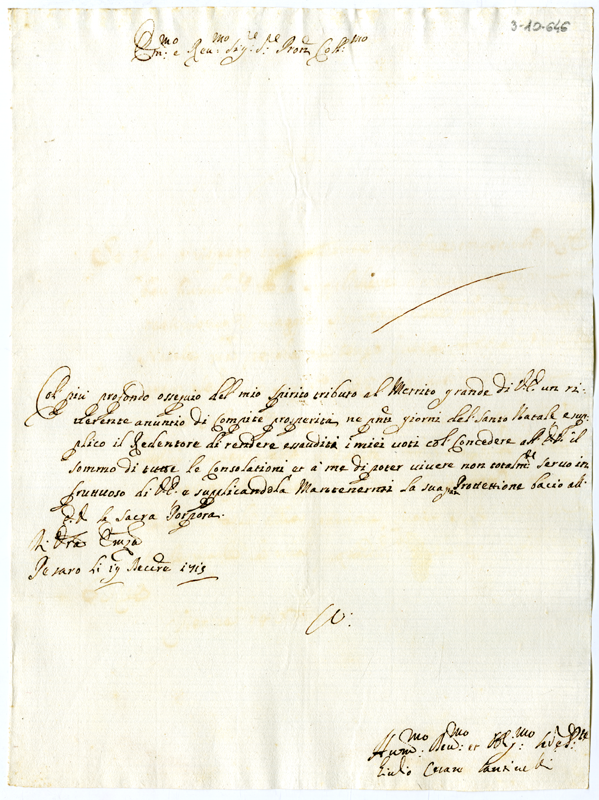 3-12-646
Em:mo e Reu:mo Sig:re S:re Pron Col:mo
Col più profondo ossequio del mio spirito tributo al Merrito grande di V.E. un ri-
uerente anuncio di compite prosperità ne pnti giorni del Santo Natale e sup-
plico il Redentore di rendere esaudita i miei voti col Concedere all' V.E. il
sommo di tutte le Consolationi et a me di poter vivere non totalm:te seruo in
fruttuoso di V.E. e supplicandola Mantenermi la sua Prottettione bacio all'
E.V. la Sacra Porpora.
Di Vra Emza
Pesaro li 19 Decbre 1715
Hum:mo Deu:mo et Obl:mo
Giulio Cesare